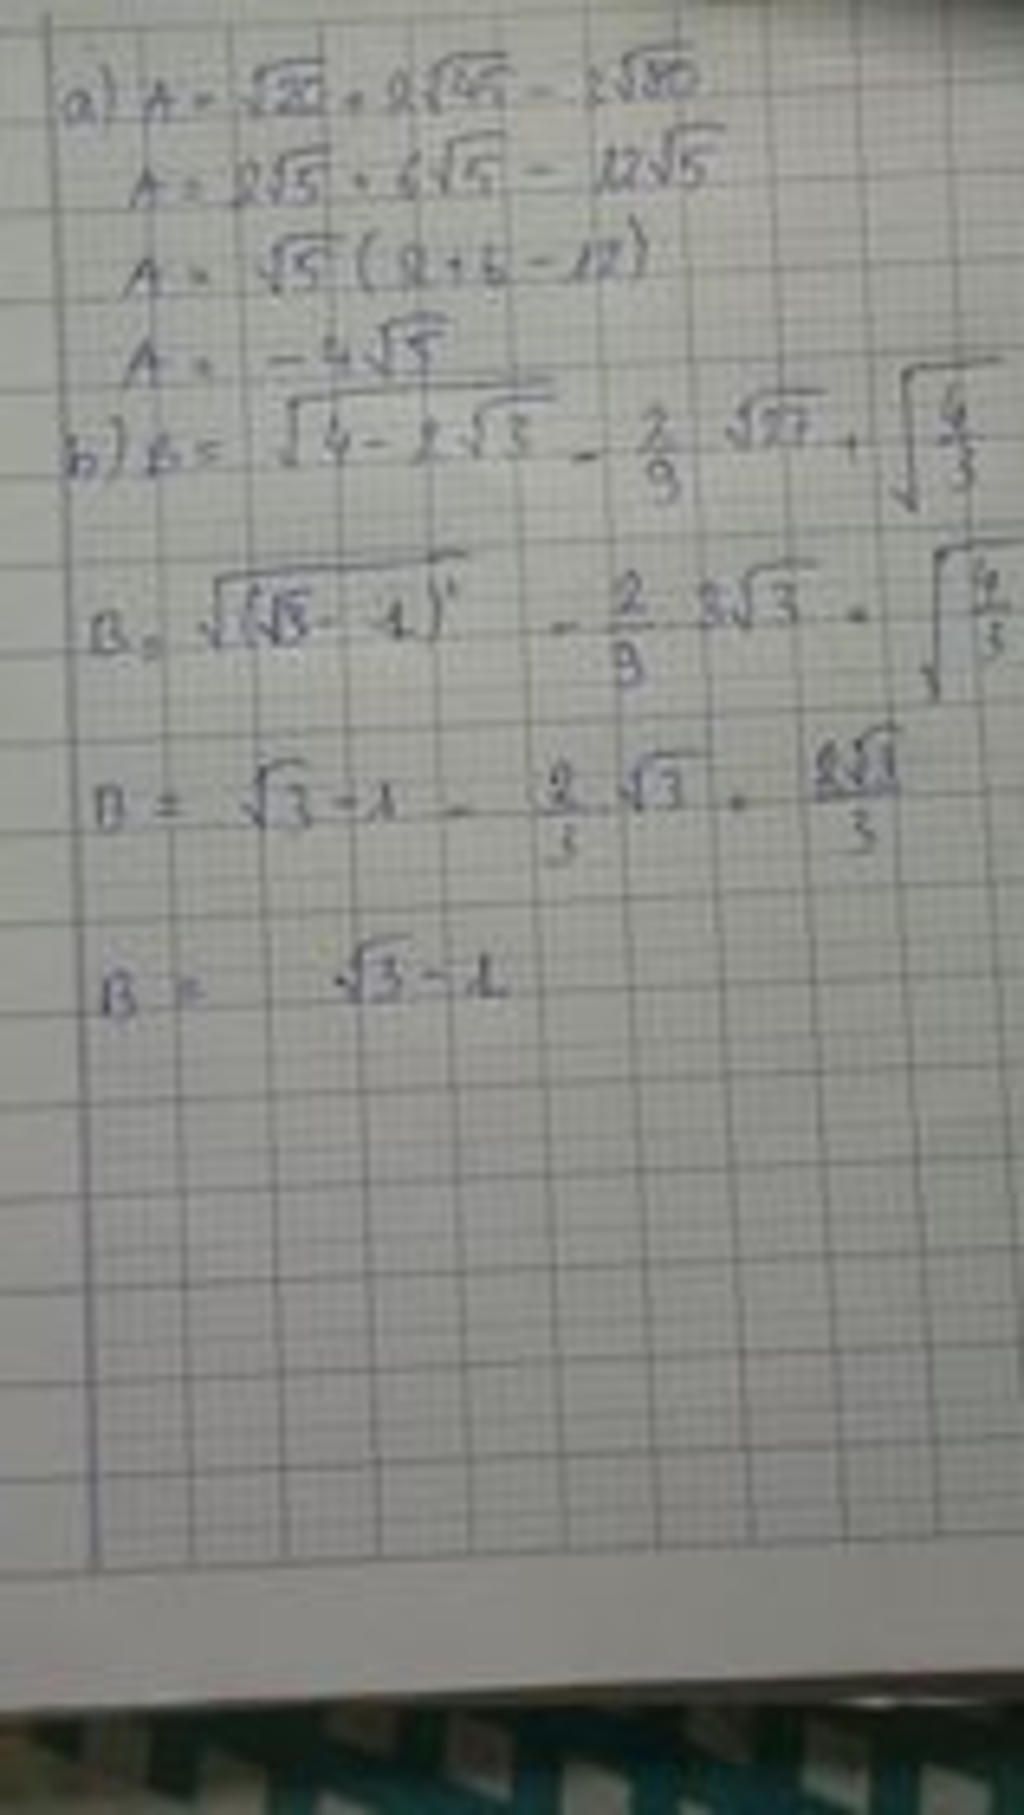 a) A = √20 + 2√45 - √80
A = 2√5 + 6√5 - 12√5
A = √5 (2 + 6 - 12)
A = -4√5
b) B = √(4 - 2√3) - 2/9 √27 + √(4/3)
B = √((√3 - 1)²) - 2/9 3√3 + √(4/3)
B = √3 - 1 - 2/3 √3 + 2√3/3
B = √3 - 1